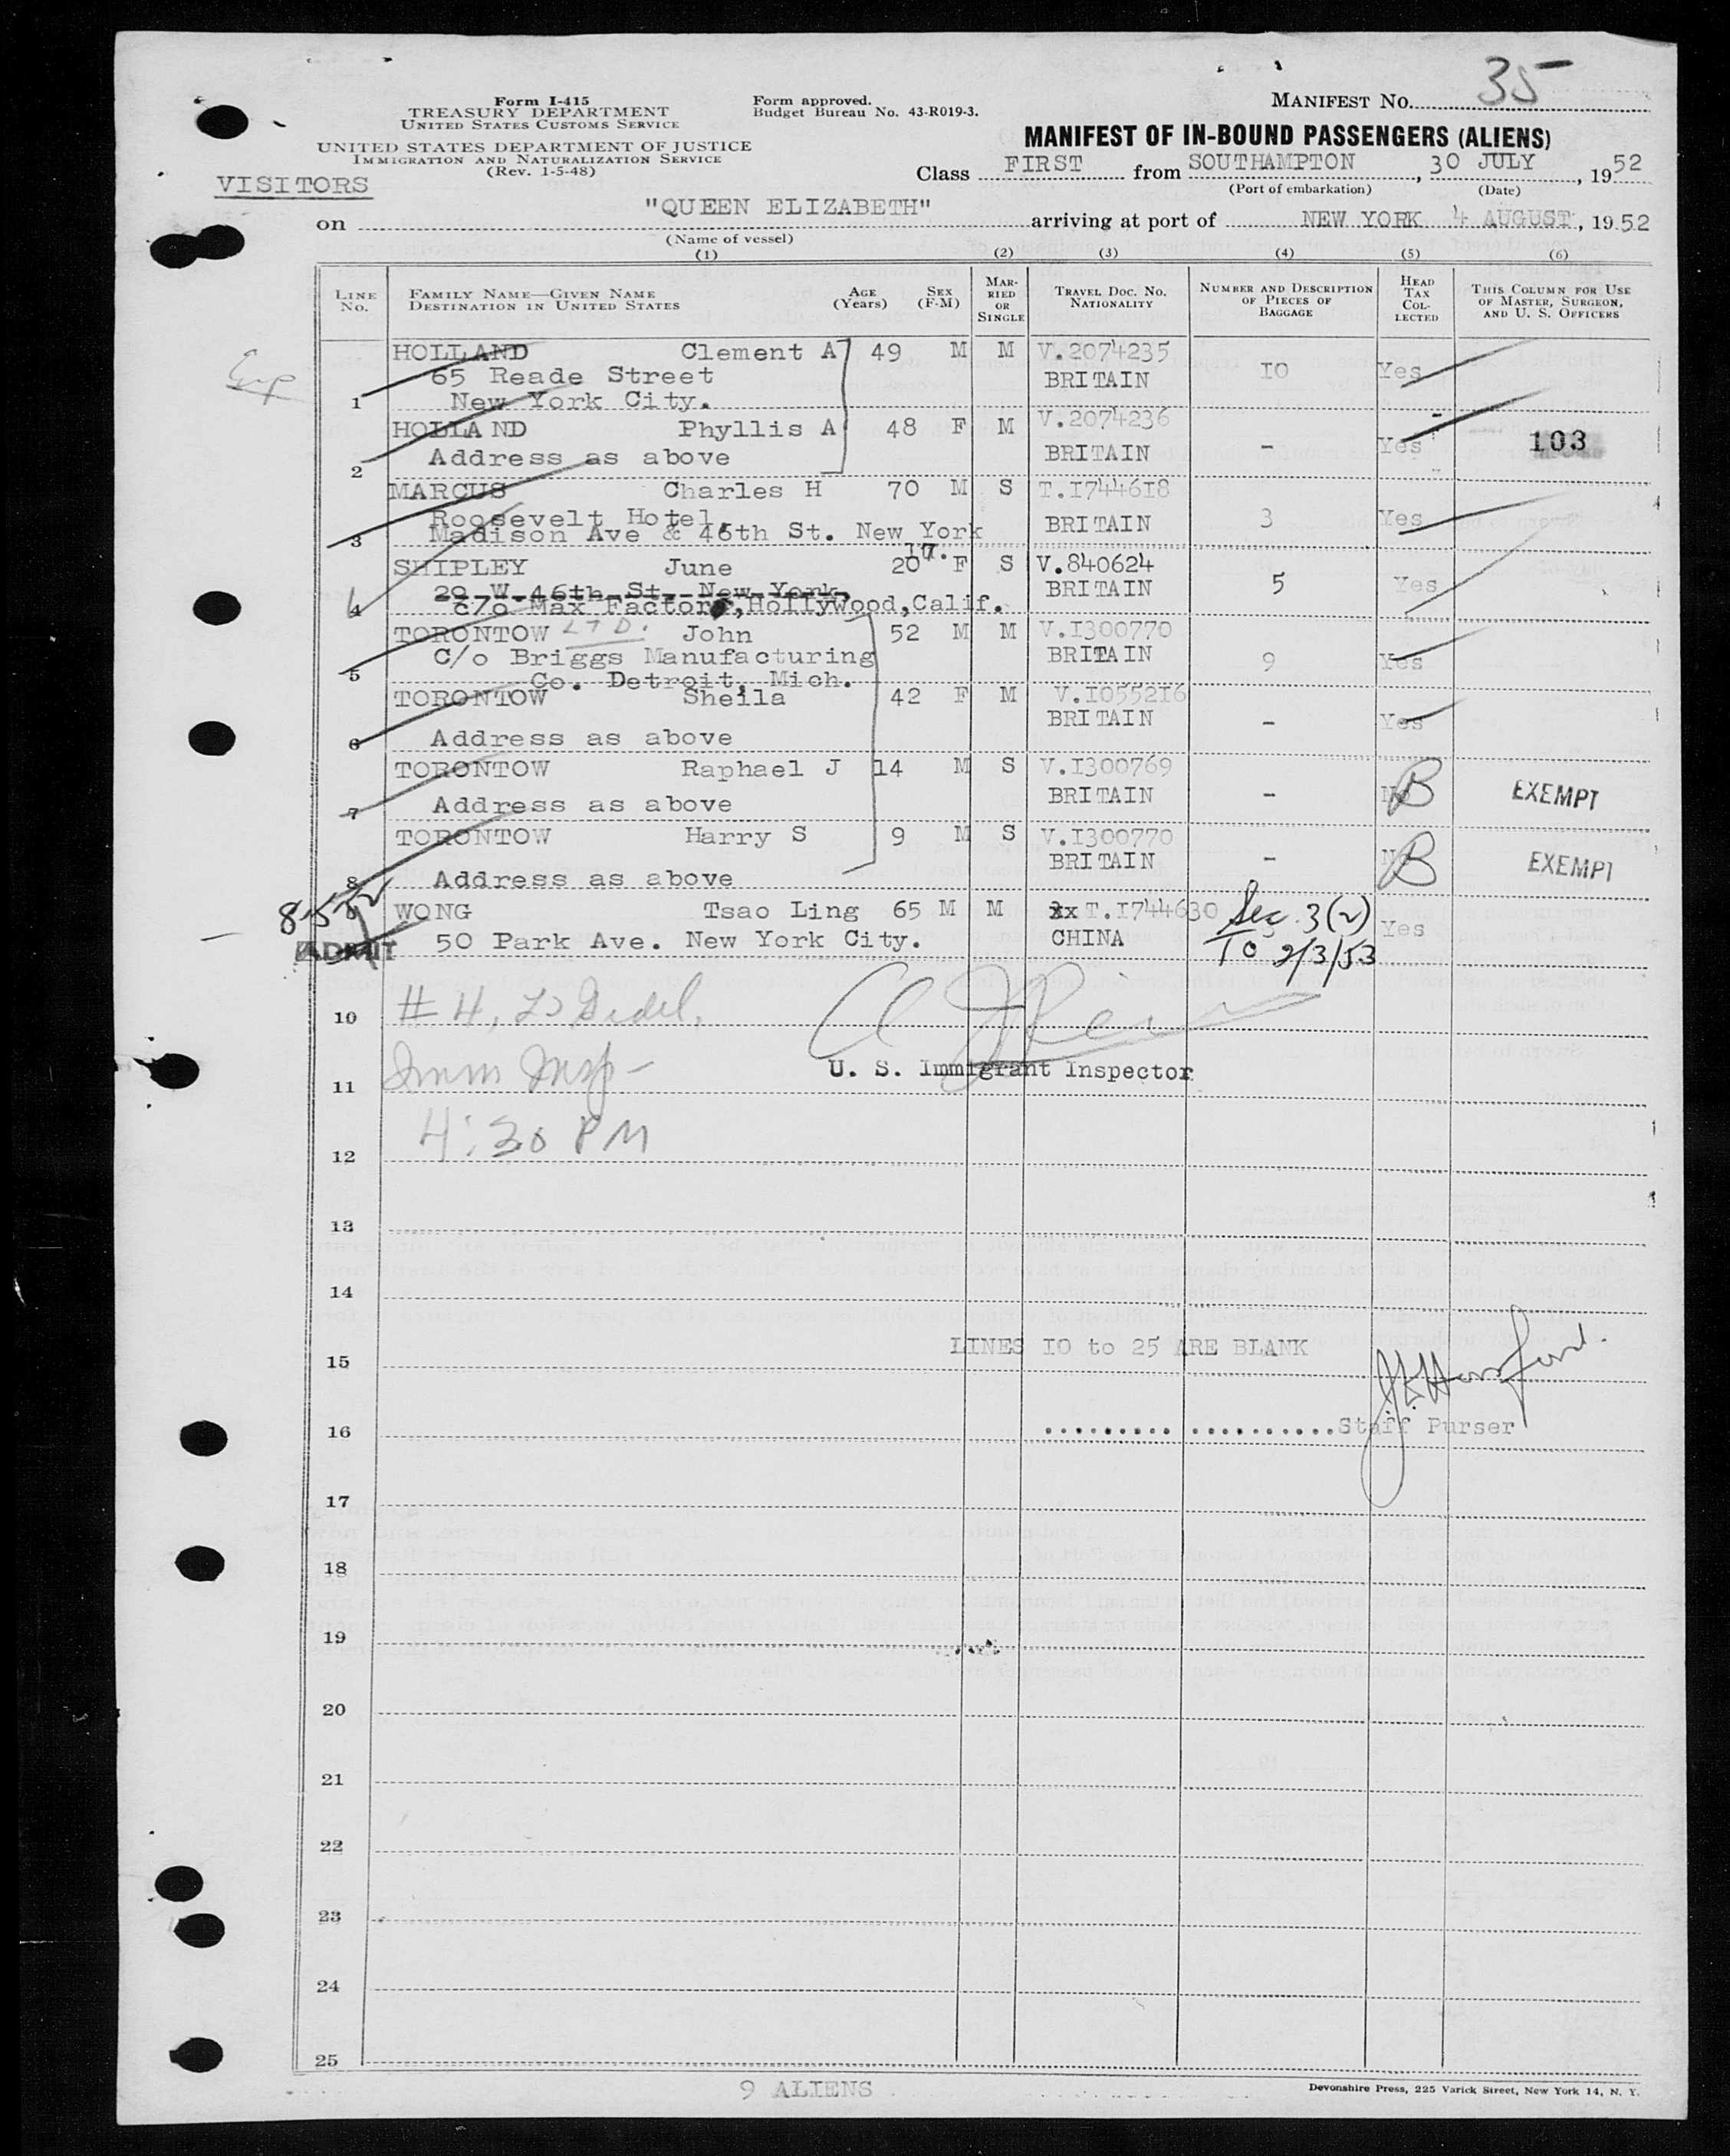 35
Form I-415
TREASURY DEPARTMENT
UNITED STATES CUSTOMS SERVICE
UNITED STATES DEPARTMENT OF JUSTICE
IMMIGRATION AND NATURALIZATION SERVICE
(Rev. 1-5-48)
Form approved.
Budget Bureau No. 43-R019-3.
MANIFEST NO.
MANIFEST OF IN-BOUND PASSENGERS (ALIENS)
VISITORS
Class FIRST from SOUTHAMPTON, 30 JULY, 1952
(Port of embarkation) (Date)
on "QUEEN ELIZABETH" arriving at port of NEW YORK 4 AUGUST, 1952
(Name of vessel)
(1) (2) (3) (4) (5) (6)
LINE NO. FAMILY NAME—GIVEN NAME DESTINATION IN UNITED STATES AGE (Years) SEX (F-M) MARRIED OR SINGLE TRAVEL DOC. NO. NATIONALITY NUMBER AND DESCRIPTION OF PIECES OF BAGGAGE HEAD TAX COLLECTED THIS COLUMN FOR USE OF MASTER, SURGEON, AND U. S. OFFICERS
HOLLAND Clement A 49 M M V.2074235
65 Reade Street BRITAIN IO Yes
1 New York City.
HOLLAND Phyllis A 48 F M V.2074236
2 Address as above BRITAIN - Yes 103
MARCUS Charles H 70 M S T.I7446I8
Roosevelt Hotel, BRITAIN 3 Yes
3 Madison Ave & 46th St. New York
17.
SHIPLEY June 20 F S V.840624
29 W.46th St. New York, BRITAIN 5 Yes
4 c/o Max Factor, Hollywood,Calif.
LTD.
TORONTOW John 52 M M V.I300770
C/o Briggs Manufacturing BRITAIN 9 Yes
5 Co. Detroit, Mich.
TORONTOW Sheila 42 F M V.I0552I6
BRITAIN - Yes
6 Address as above
TORONTOW Raphael J 14 M S V.I300769
7 Address as above BRITAIN - No B EXEMPT
TORONTOW Harry S 9 M S V.I300770
BRITAIN - No B EXEMPT
8 Address as above
8-5-52 WONG Tsao Ling 65 M M xx T.I744630 Sec. 3(2) Yes
ADMIT 50 Park Ave. New York City. CHINA TO 2/3/53
10 # 4,
11 Imm Insp - U. S. Immigrant Inspector
4:30 PM
12
13
14
LINES IO to 25 ARE BLANK
15
16 Staff Purser
17
18
19
20
21
22
23
24
25
9 ALIENS
Devonshire Press, 225 Varick Street, New York 14, N. Y.